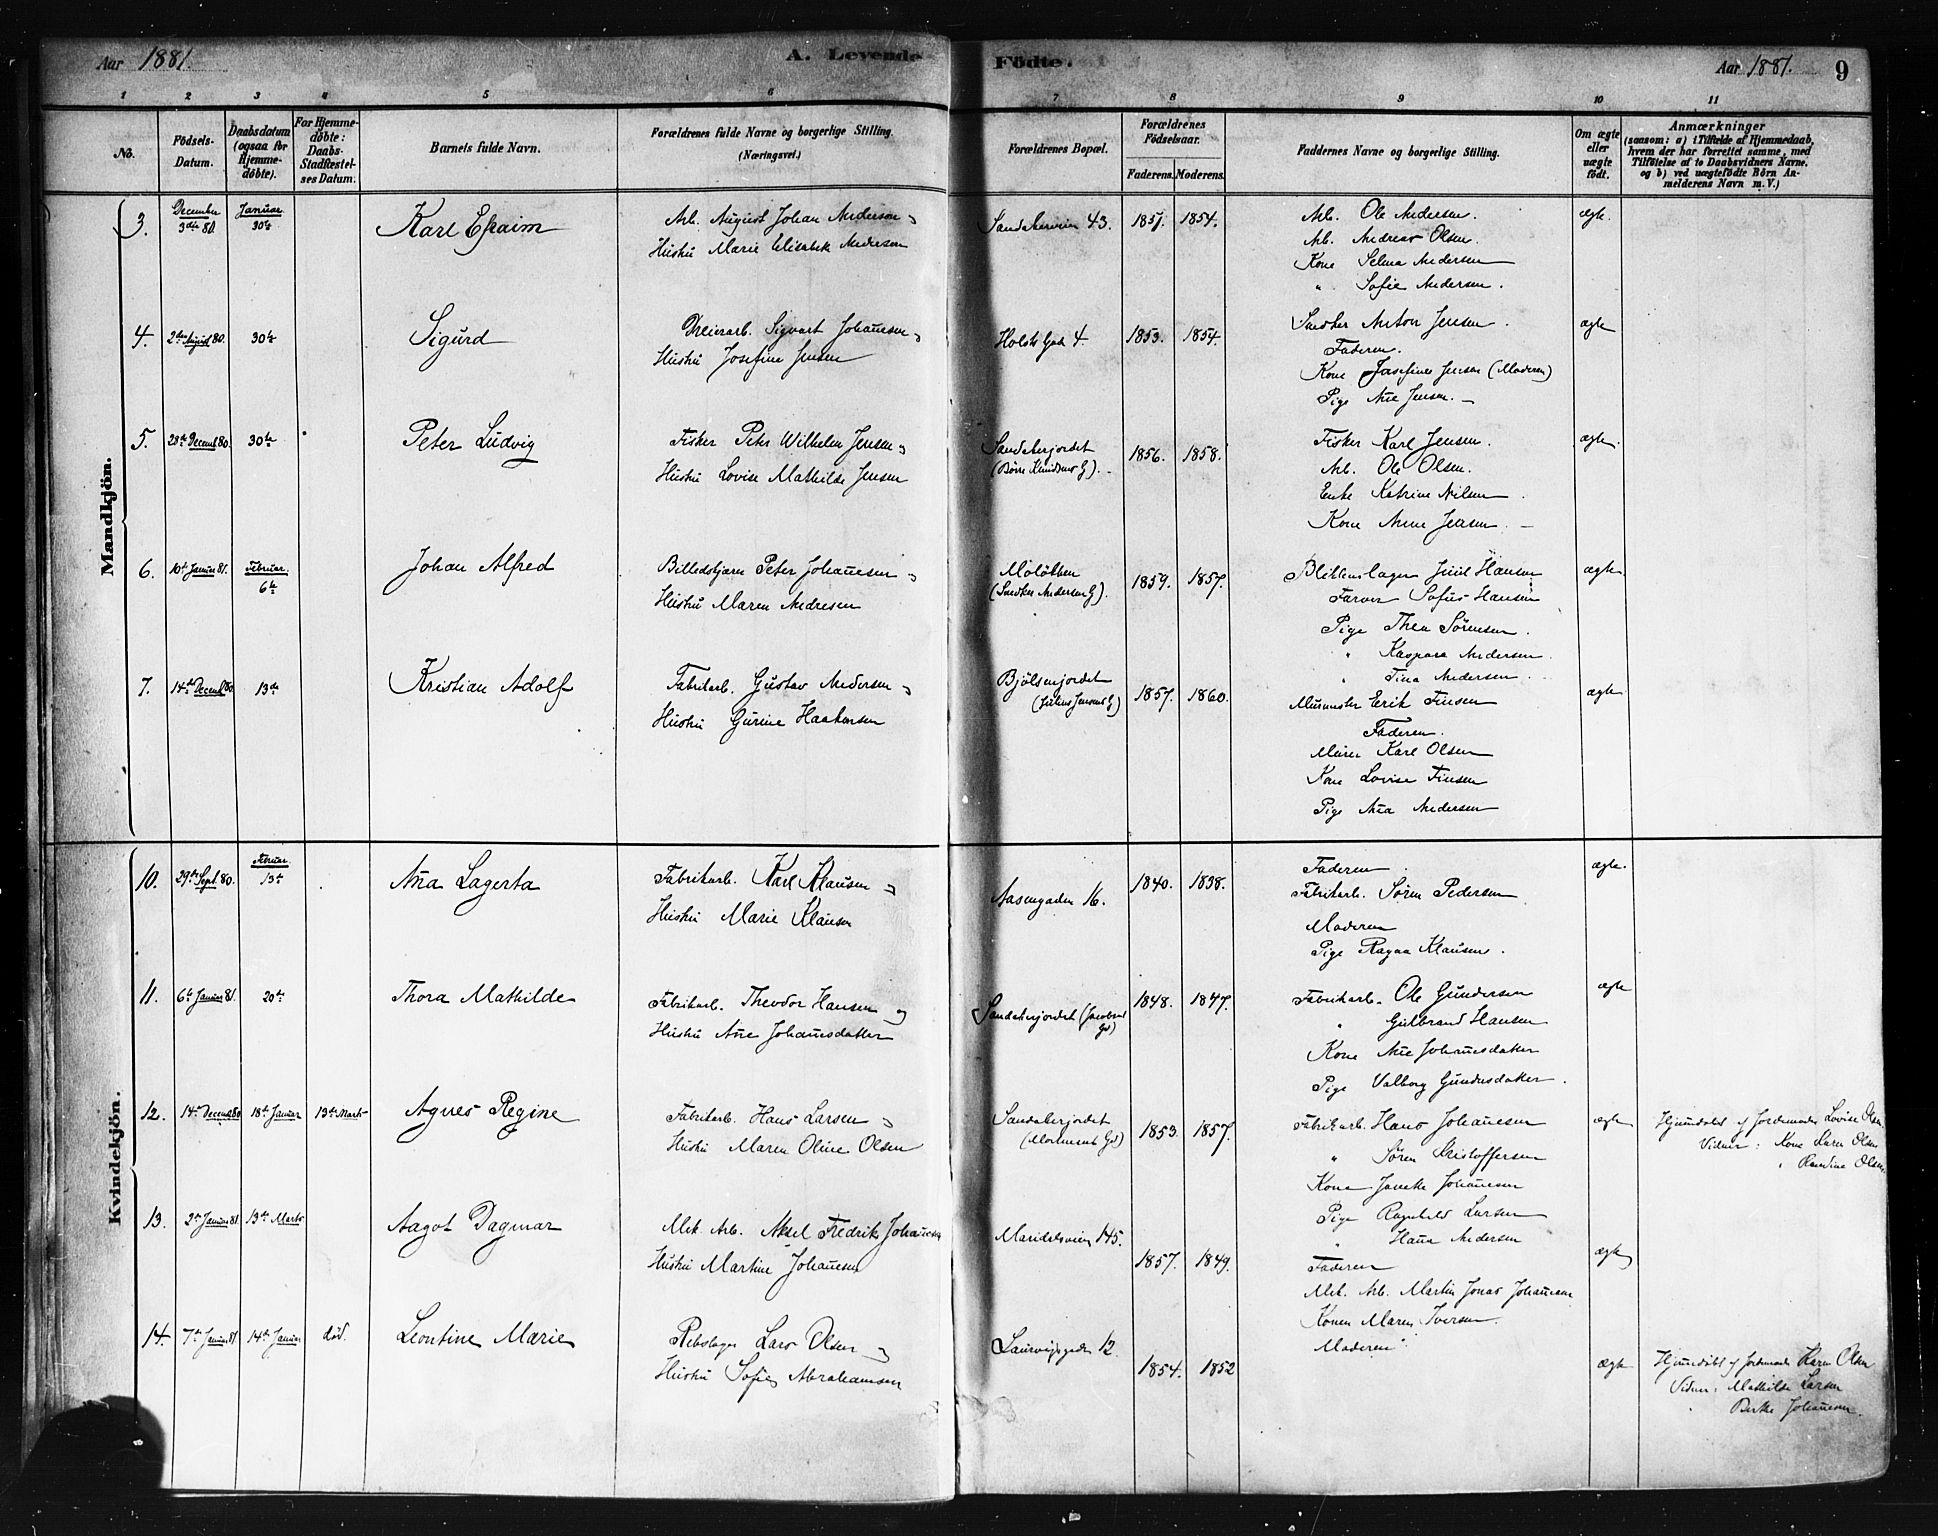 Aar 1881. A. Levende Födte. Aar 1881. 9
1 2 3 4 5 6 7 8 9 10 11
No.
Födsels-Datum.
Daabsdatum (ogsaa for Hjemme-döbte).
For Hjemme-döbte: Daabs-Stadfæstel-ses Datum.
Barnets fulde Navn.
Forældrenes fulde Navne og borgerlige Stilling. (Næringsvei.)
Forældrenes Bopæl.
Forældrenes Födselsaar.
Faderens. Moderens.
Faddernes Navne og borgerlige Stilling.
Om ægte eller uægte födt.
Anmærkninger
(saasom: a) i Tilfælde af Hjemmedaab, hvem der har forrettet samme, med Tilföielse af to Daabsvidners Navne, og b) ved uægtefödte Börn Anmelderens Navn m. V.)
Mandkjön.
3. December 3die 80. Januar 30te Karl Efraim
Arb. August Johan Anderson og
Hustru Marie Elisabek Anderson
Sandakerveien 43. 1851. 1854.
Arb. Ole Andersen.
Arb. Andreas Olsen.
Kone Selma Andersen
" Sofie Andersen.
ægte.
4. 2den August 80. 30te Sigurd
Sigvart Johannesen og
Hustru Josefine Jensen
Holsts Gade 4. 1853. 1854.
Snedker Anton Jensen.
Faderen.
Kone Josefine Jensen (Moderen)
Pige Ane Jensen.
ægte
5. 28de Decemb. 80. 30te Peter Ludvig
Fisker Peter Wilhelm Jensen og
Hustru Lovise Mathilde Jensen
Sandakerjordet
(Börre Knudsens G). 1856. 1858.
Fisker Karl Jensen.
Arb. Ole Olsen.
Enke Katrine Nilsen.
Kone Anne Jensen.
ægte.
6. 10de Januar 81. Februar 6te Johan Alfred
Billedskjærer Peter Johannesen og
Hustru Maren Andresen
Molökken
(Snedker Andersens G). 1859. 1857.
Blikkenslager Juul Hansen
Farver Sofus Hansen
Pige Thea Sörensen.
" Kaspara Andersen.
" Tina Andersen.
ægte.
7. 14de Decemb. 80 13de Kristian Adolf
Fabrikarb. Gustav Andersen og
Hustru Gurine Haakensen
Bjölsenjordet
(Julius Jensens G) 1857. 1860.
Murmester Erik Finsen
Faderen.
Murer Karl Olsen
Kone Lovise Finsen
Pige Ana Andersen
ægte
Kvindekjön.
10. 29de Sept. 80. Februar 13de Ana Lagerta
Fabrikarb. Karl Klausen og
Hustru Marie Klausen
Aasengaden 16. 1840. 1838.
Faderen.
Fabrikarb. Sören Pedersen
Moderen
Pige Ragna Klausen.
ægte.
11. 6te Januar 81. 20de Thora Mathilde
Fabrikarb. Theodor Hansen og
Hustru Ane Johanesdatter
Sandakerjordet (Jacobsens Gd) 1848. 1847.
Fabrikarb. Ole Gundersen
" Gulbrand Hansen
Kone Ane Johanesdatter
Pige Valborg Gundersdatter.
ægte
12. 14de Decemb. 80 18de Januar 13de Marts Agnes Regine
Fabrikarb. Hans Larsen og
Hustru Maren Oline Olsen
Sandakerjordet
(Mortensens Gd) 1853. 1857.
Fabrikarb. Hans Johanesen
" Sören Kristoffersen
Kone Johanesen
Pige Ragnhild Larsen
" Hana Andersen
ægte
Hjemdöbt af Jordemoder Lovise Olsen
Vidner: Kone Karen Olsen
" Randine Olsen
13. 2den Januar 81. 13de Marts Aagot Dagmar
Mek. Arb. Aksel Fredrik Johannesen
Hustru Martine Johanesen
Maridalsveien 145. 1857. 1849.
Faderen
Mek. Arb. Martin Jonas Johannesen
Konen Maren Iversen.
Moderen.
ægte
14. 7de Januar 81. 14de Januar död. Leontine Marie
Rebslager Lars Olsen og
Hustru Sofie Abrahamsen
Laurvigsgaden 12. 1854. 1852
ægte
Hjemdöbt af Jordemoder Karen Olsen
Vidner: Mathilde Larsen
" Berthe Johanesen.